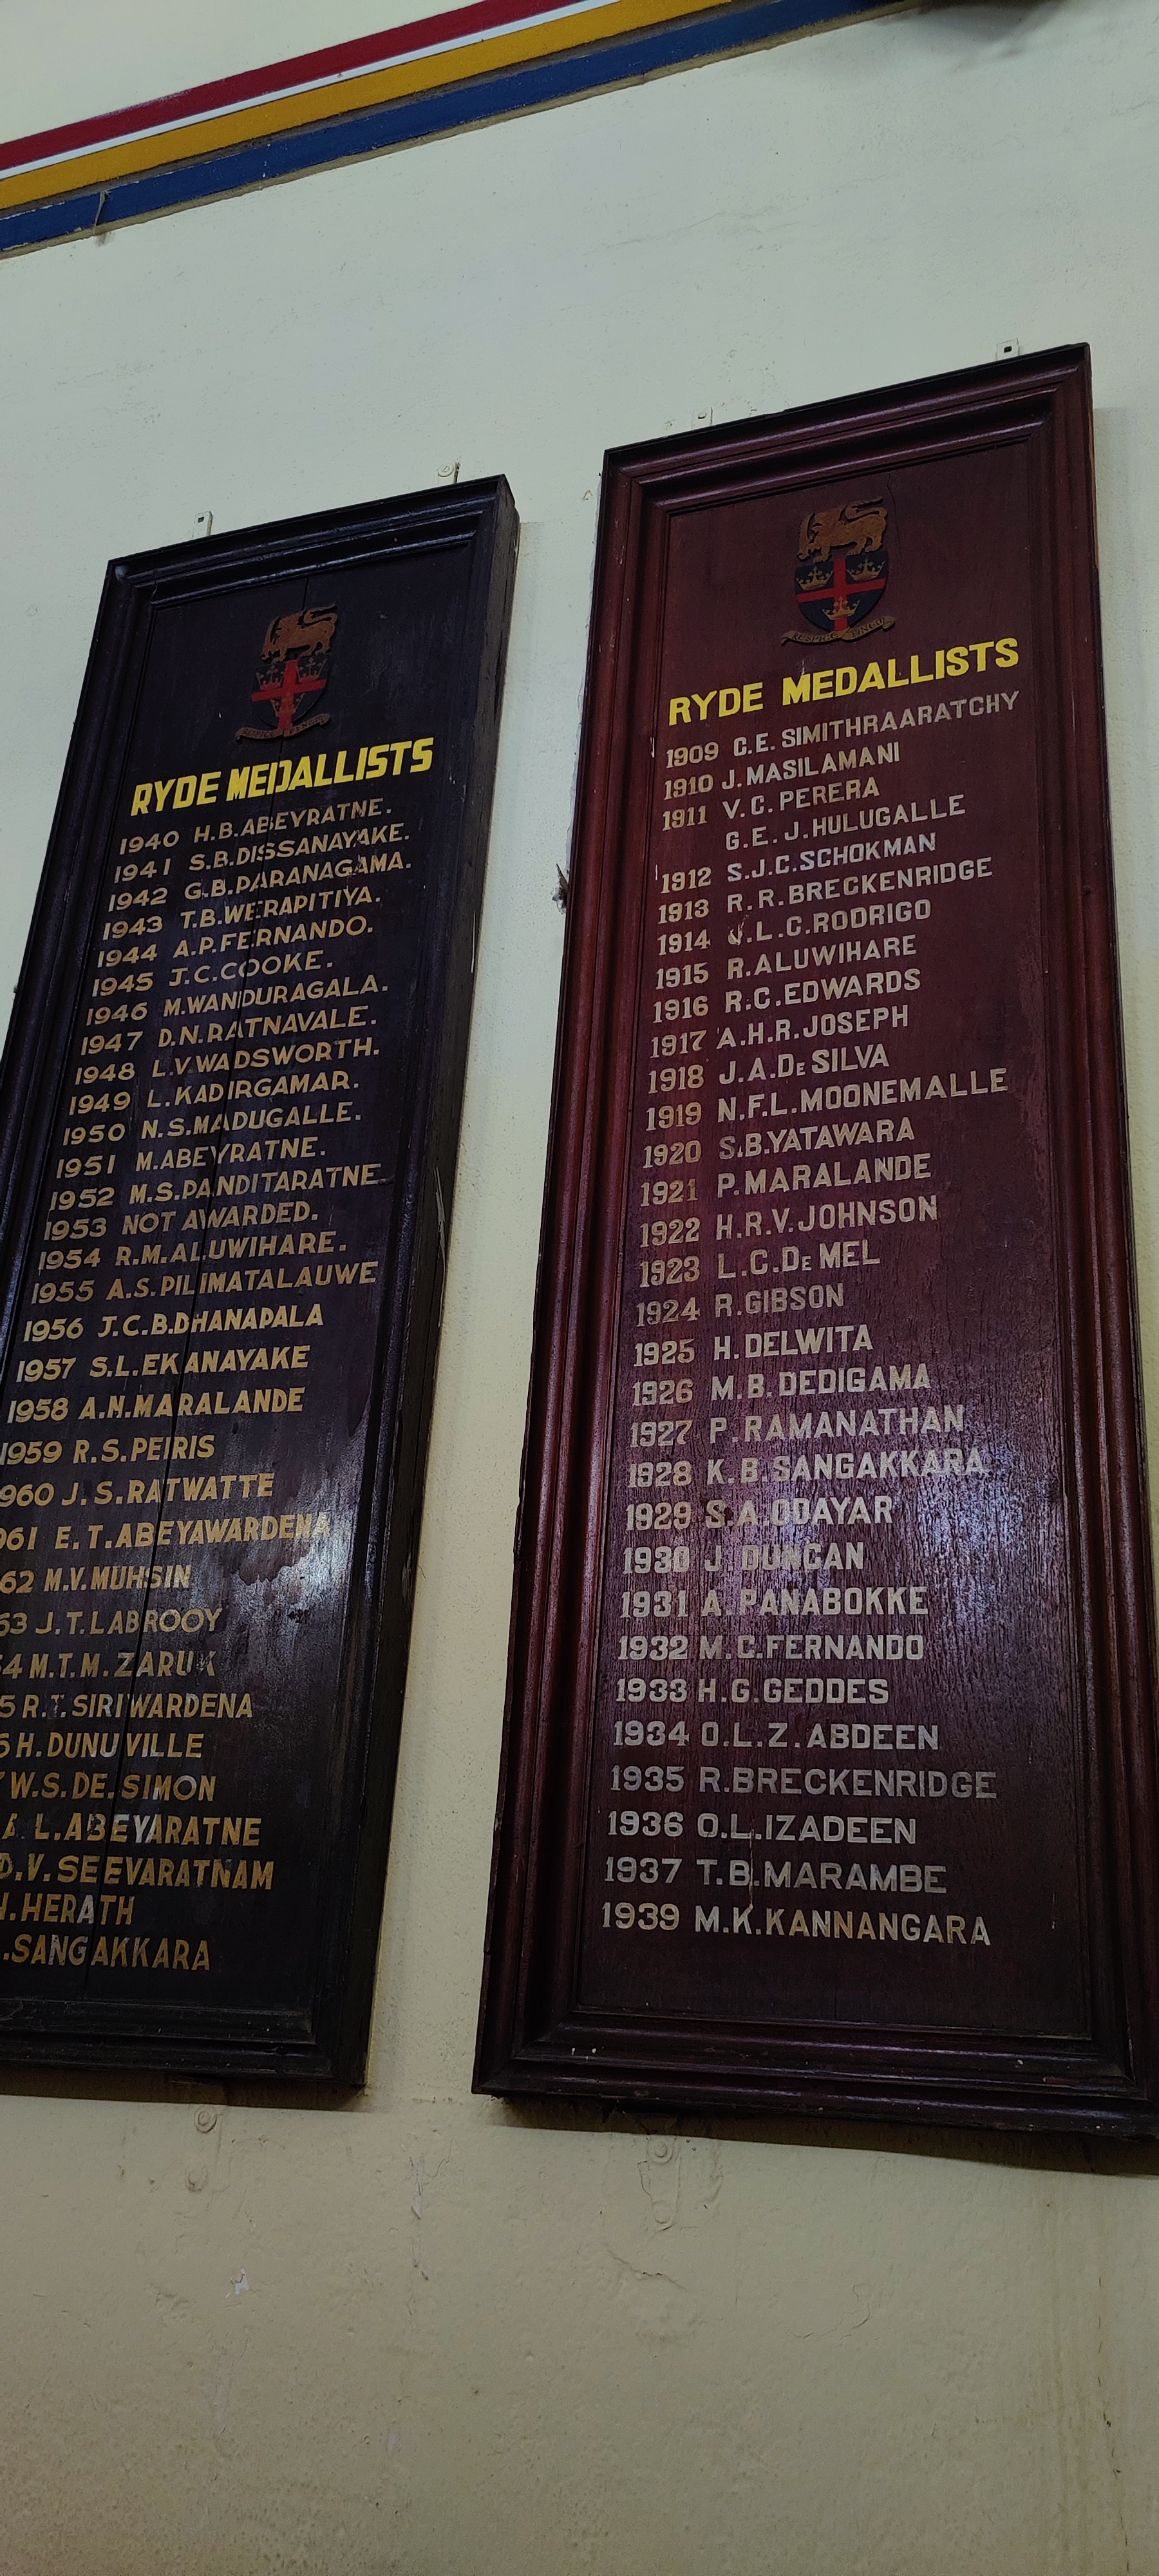 RYDE MEDALLISTS
1940 H.B.ABEYRATNE.
1941 S.B.DISSANAYAKE.
1942 G.B.PARANAGAMA.
1943 T.B.WERAPITIYA.
1944 A.P.FERNANDO.
1945 J.C.COOKE.
1946 M.WANDURAGALA.
1947 D.N.RATNAVALE.
1948 L.V.WADSWORTH.
1949 L.KADIRGAMAR.
1950 N.S.MADUGALLE.
1951 M.ABEYRATNE.
1952 M.S.PANDITARATNE.
1953 NOT AWARDED.
1954 R.M.ALUWIHARE.
1955 A.S.PILIMATALAUWE
1956 J.C.B.DHANAPALA
1957 S.L.EKANAYAKE
1958 A.N.MARALANDE
1959 R.S.PEIRIS
960 J.S.RATWATTE
961 E.T.ABEYAWARDENA
62 M.V.MUHSIN
63 J.T.LABROOY
4 M.T.M.ZARUK
5 R.T.SIRIWARDENA
6 H.DUNUVILLE
7 W.S.DE.SIMON
A.L.ABEYARATNE
D.V.SEEVARATNAM
.HERATH
.SANGAKKARA
RYDE MEDALLISTS
1909 C.E.SIMITHRAARATCHY
1910 J.MASILAMANI
1911 V.C.PERERA
G.E.J.HULUGALLE
1912 S.J.C.SCHOKMAN
1913 R.R.BRECKENRIDGE
1914 J.L.C.RODRIGO
1915 R.ALUWIHARE
1916 R.C.EDWARDS
1917 A.H.R.JOSEPH
1918 J.A.De SILVA
1919 N.F.L.MOONEMALLE
1920 S.B.YATAWARA
1921 P.MARALANDE
1922 H.R.V.JOHNSON
1923 L.C.De MEL
1924 R.GIBSON
1925 H.DELWITA
1926 M.B.DEDIGAMA
1927 P.RAMANATHAN
1928 K.B.SANGAKKARA
1929 S.A.ODAYAR
1930 J.DUNCAN
1931 A.PANABOKKE
1932 M.C.FERNANDO
1933 H.G.GEDDES
1934 O.L.Z.ABDEEN
1935 R.BRECKENRIDGE
1936 O.L.IZADEEN
1937 T.B.MARAMBE
1939 M.K.KANNANGARA